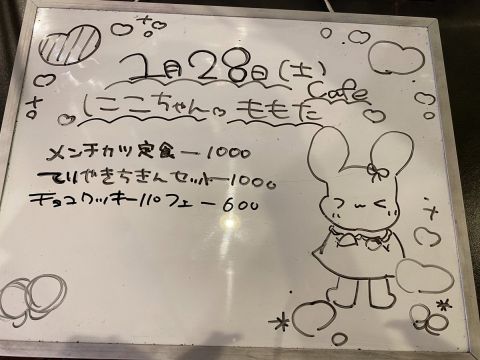 1月28日(土)
Cafe
にこちゃん♡ももた
メンチカツ定食ー1000
てりやきちきんセットー1000
チョコクッキーパフェー600